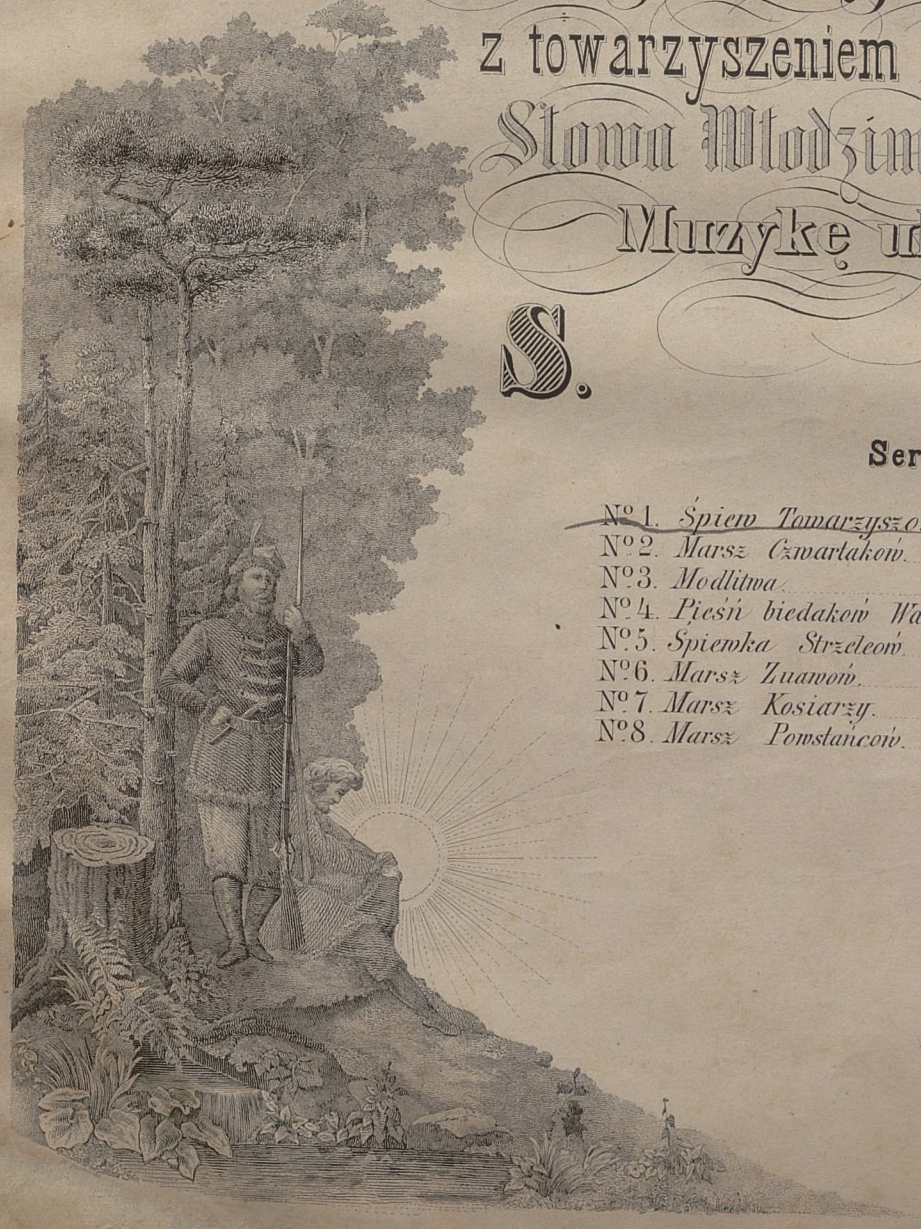 z towarzyszeniem
Słowa Włodzim
Muzykę u
S.
Ser
Nº 1. Śpiew Towarzyszo
Nº 2. Marsz Czwartaków.
Nº 3. Modlitwa
Nº 4. Pieśń biedaków Wa
Nº 5. Śpiewka Strzelców.
Nº 6. Marsz Zuawów.
Nº 7. Marsz Kosiarzy.
Nº 8. Marsz Powstańców.